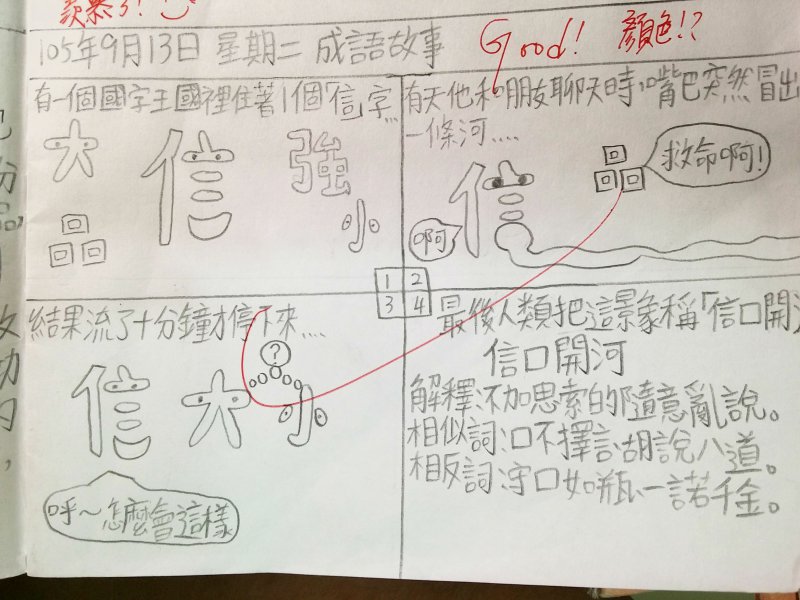 羨慕了!
105年9月13日 星期二 成語故事
Good! 顏色!?
有一個國字王國裡住著1個「信」字...
大
信
強
品
小
有天他和朋友聊天時,嘴巴突然冒出
一條河....
救命啊!
品
信
啊
1 2
3 4
結果流了十分鐘才停下來....
?
信 大 小
呼~怎麼會這樣
最後人類把這景象稱「信口開
信口開河
解釋:不加思索的隨意亂說。
相似詞:口不擇言、胡說八道。
相反詞:守口如瓶、一諾千金。